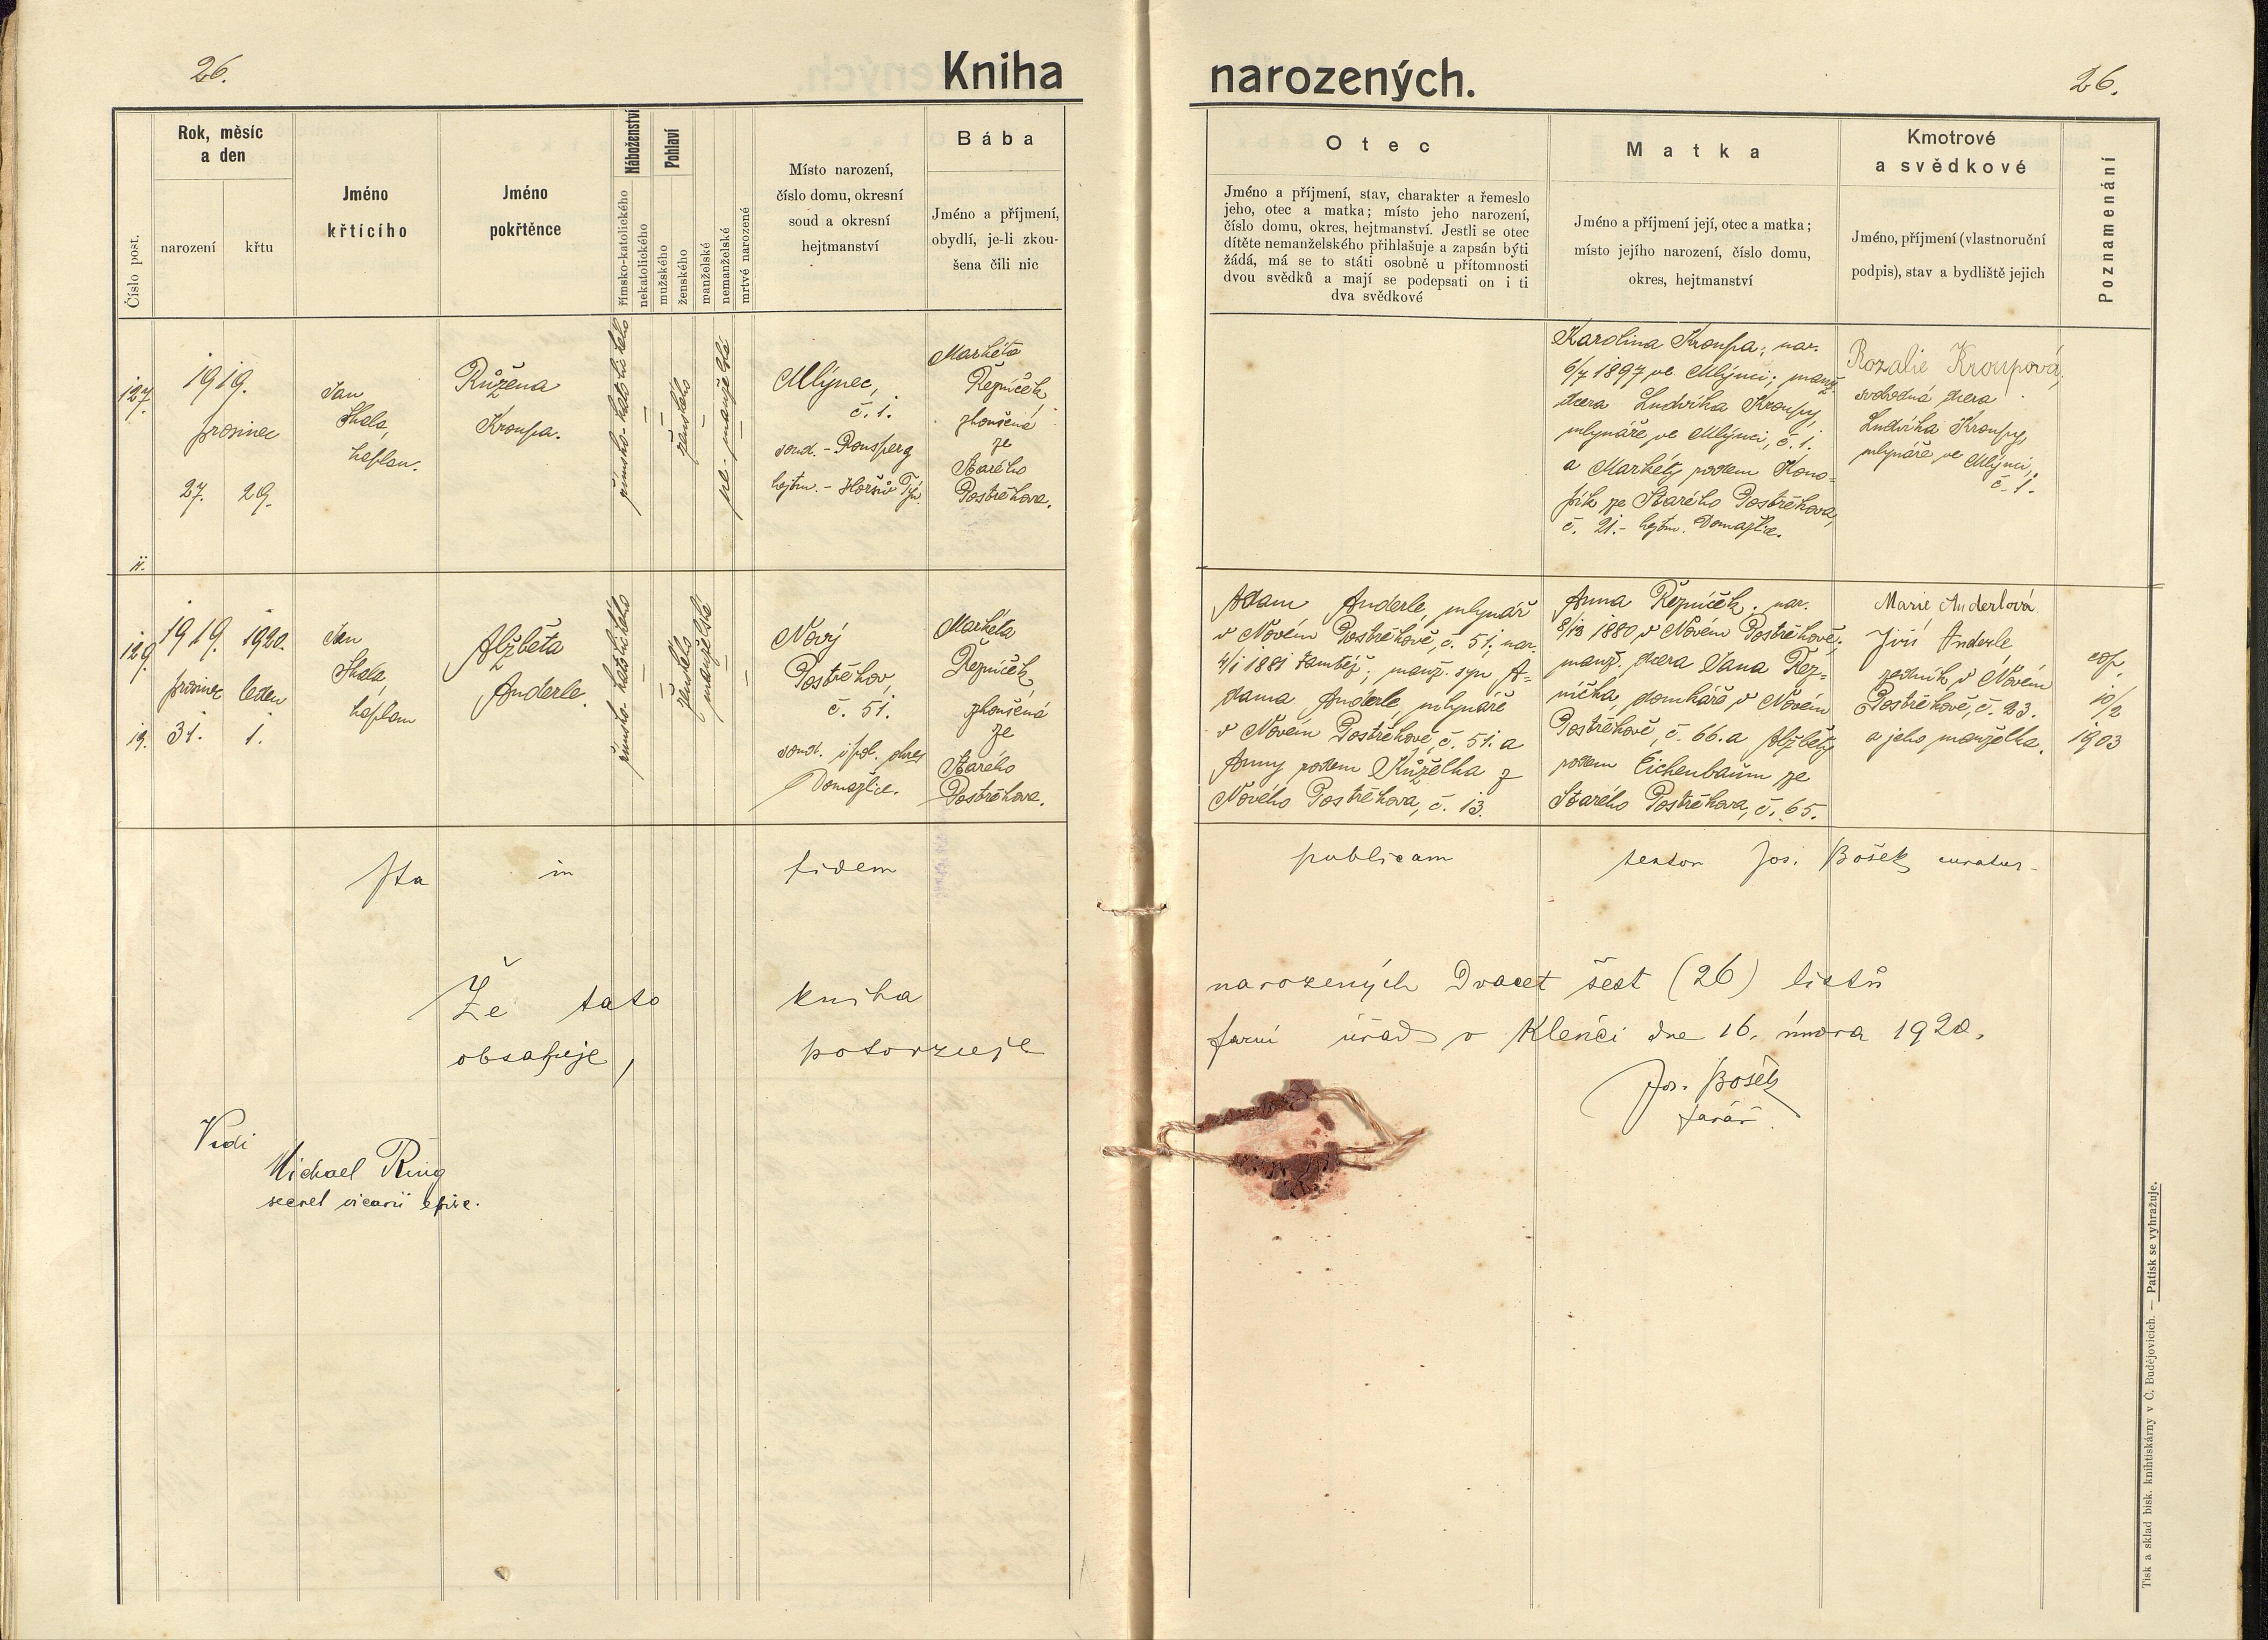 26.
Kniha narozených.
26.
Číslo post.
Rok, měsíc
a den
narození
křtu
Jméno
křtícího
Jméno
pokřtěnce
Náboženství
římsko-katolického
nekatolického
Pohlaví
mužského
ženského
manželské
nemanželské
mrtvé narozené
Místo narození,
číslo domu, okresní
soud a okresní
hejtmanství
Bába
Jméno a příjmení,
obydlí, je-li zkou-
šena čili nic
Otec
Jméno a příjmení, stav, charakter a řemeslo
jeho, otec a matka; místo jeho narození,
číslo domu, okres, hejtmanství. Jestli se otec
dítěte nemanželského přihlašuje a zapsán býti
žádá, má se to státi osobně u přítomnosti
dvou svědků a mají se podepsati on i ti
dva svědkové
Matka
Jméno a příjmení její, otec a matka;
místo jejího narození, číslo domu,
okres, hejtmanství
Kmotrové
a svědkové
Jméno, příjmení (vlastnoruční
podpis), stav a bydliště jejich
Poznamenání
127.
1919.
prosinec
27. 29.
Jan
Skala,
kaplan.
Růžena
Kroupa.
římsko-katolického
—
—
ženského
—
ne-manželské
—
Mlýnec,
č. 1.
soud. - Ronsperg
hejtm. - Horšův Týn.
Markéta
Řezníček,
zkoušená
ze
Starého
Postřekova.
Karolina Kroupa; nar.
6/7 1897 ve Mlýnci; manž.
dcera Ludvíka Kroupy,
mlynáře ve Mlýnci, č. 1.
a Markéty rodem Kono-
pík ze Starého Postřekova,
č. 21.- hejtm. Domažlice.
Rozalie Kroupová,
svobodná dcera
Ludvíka Kroupy,
mlynáře ve Mlýnci,
č. 1.
11.
129.
1919. 1920.
prosinec leden
31. 1.
19.
Jan
Skala,
kaplan
Alžběta
Anderle.
římsko-katolického
—
—
ženského
manželské
—
—
Nový
Postřekov,
č. 51.
soud. i pol. okres
Domažlice.
Markéta
Řezníček,
zkoušená
ze
Starého
Postřekova.
Adam Anderle, mlynář
v Novém Postřekově, č. 51; nar.
4/1 1881 tamtéž; manž. syn A-
dama Anderle, mlynáře
v Novém Postřekově, č. 51. a
Anny rodem Kůželka z
Nového Postřekova, č. 13.
Anna Řezníček; nar.
8/12 1880 v Novém Postřekově;
manž. dcera Jana Řez-
níčka, domkáře v Novém
Postřekově, č. 66. a Alžběty
rodem Eichenbaum ze
Starého Postřekova, č. 65.
Marie Anderlová
Jiří Anderle,
rolník v Novém
Postřekově, č. 23.
a jeho manželka.
cop.
10/2
1903
Ita in fidem publicam testor Jos. Bošek curatus
Že tato kniha narozených Dvacet šest (26) listů
obsahuje, potvrzuje farní úřad v Klenčí dne 16. února 1920.
Jos. Bošek
farář.
Vidi
Michael Ring
secret vicarii
Tisk a sklad bisk. knihtiskárny v Č. Budějovicích. — Patisk se vyhražuje.